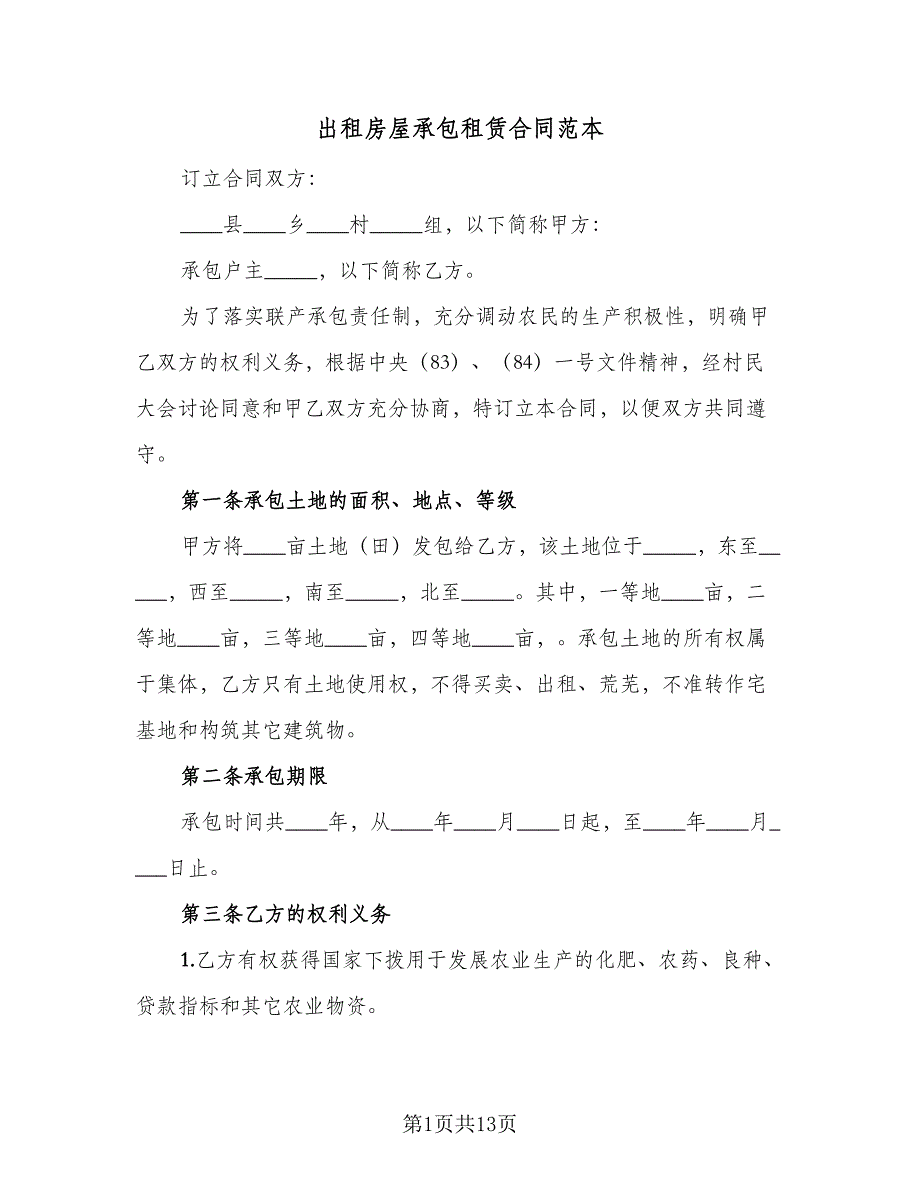 出租房屋承包租赁合同范本
订立合同双方：
____县____乡____村_____组，以下简称甲方：
承包户主_____，以下简称乙方。
为了落实联产承包责任制，充分调动农民的生产积极性，明确甲
乙双方的权利义务，根据中央（83）、（84）一号文件精神，经村民
大会讨论同意和甲乙双方充分协商，特订立本合同，以便双方共同遵
守。
第一条承包土地的面积、地点、等级
甲方将____亩土地（田）发包给乙方，该土地位于_____，东至__
___，西至_____，南至_____，北至_____。其中，一等地____亩，二
等地____亩，三等地____亩，四等地____亩，。承包土地的所有权属
于集体，乙方只有土地使用权，不得买卖、出租、荒芜，不准转作宅
基地和构筑其它建筑物。
第二条承包期限
承包时间共____年，从____年____月____日起，至____年____月_
___日止。
第三条乙方的权利义务
1.乙方有权获得国家下拨用于发展农业生产的化肥、农药、良种、
贷款指标和其它农业物资。
第1页共13页